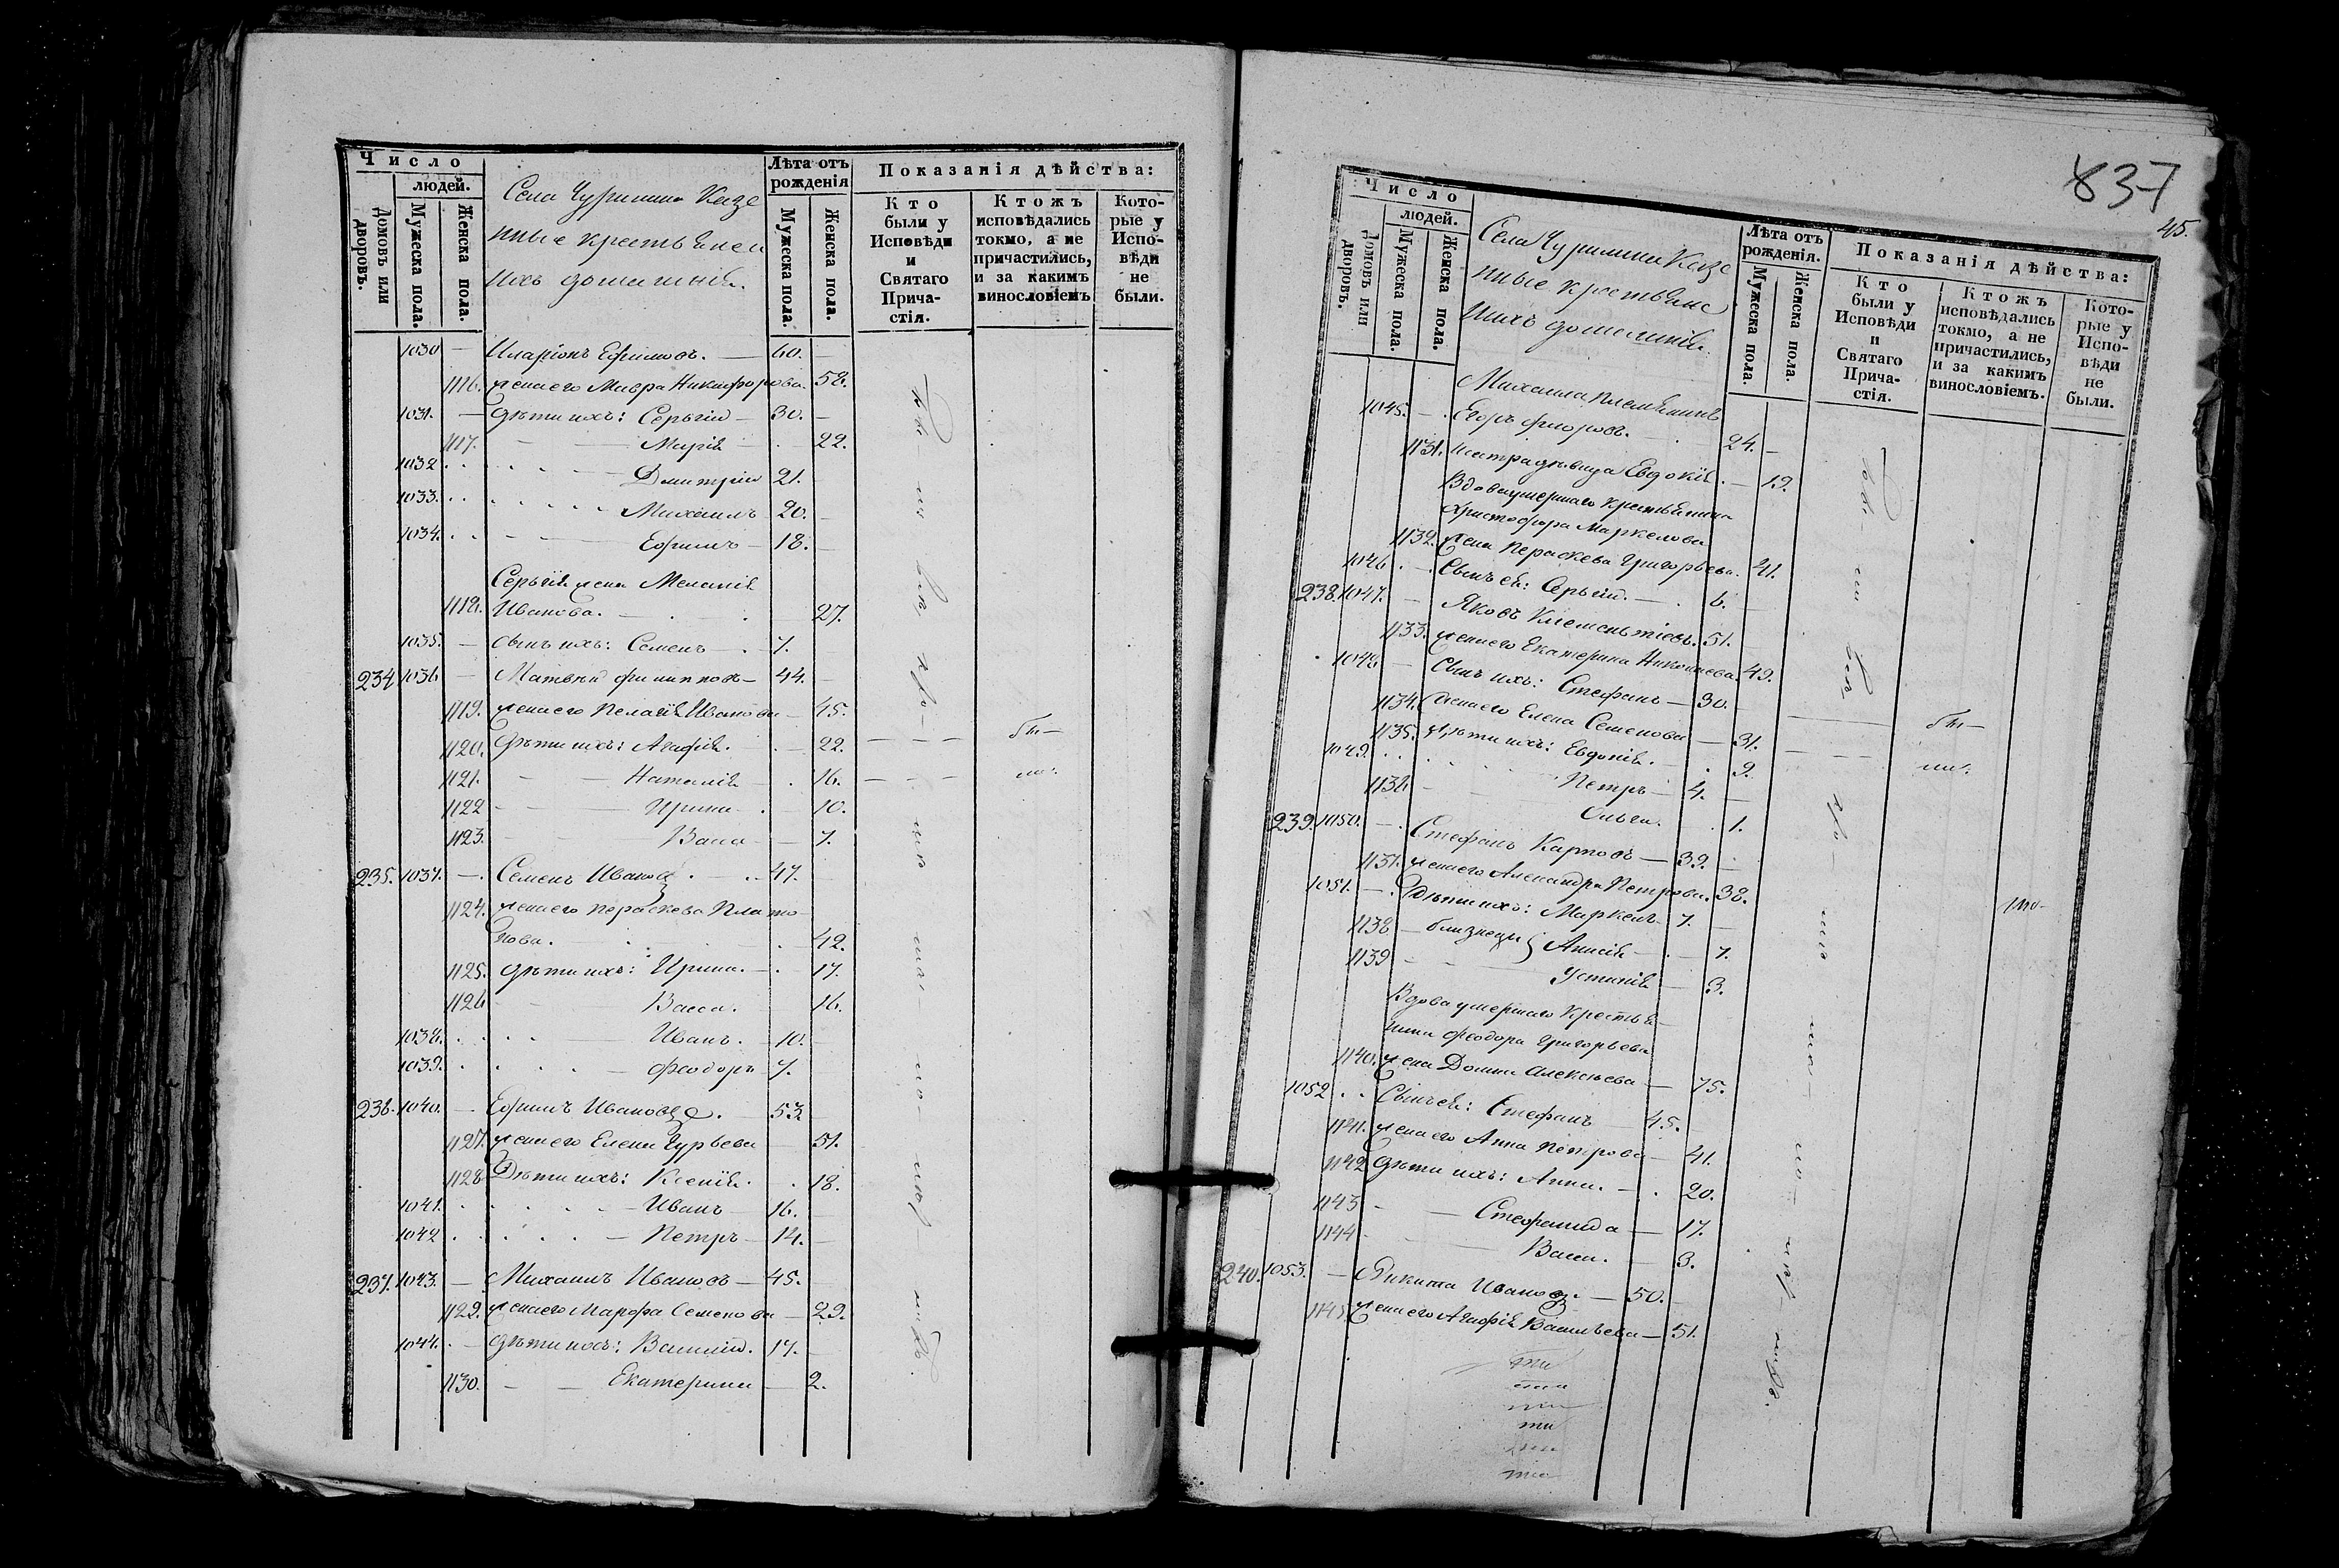 Число
людей.
Домовъ или дворовъ.
Мужеска пола.
Женска пола.
Села Чуримина Казе
нные крестьяне и
ихъ домашнія.
Лѣта отъ рожденія
Мужеска пола.
Женска пола.
Показанія дѣйства:
Кто были у Исповѣди и Святаго Прича-стія.
Ктожъ исповѣдались токмо, а не причастились, и за какимъ винословіемъ
Кото-рые у Испо-вѣди не были.
1030 — Иларіонъ Ефимовъ. — 60. —
1116. жена его Мавра Никифорова. 58.
1031. — дѣти ихъ: Сергій — 30. —
1117. — — Марія — . 22.
1032 . . . . . — Дмитрій 21.
1033. . . . . . . Михаилъ 20. —
1034. . . . — Ефимъ — 18. —
Сергія жена Меланія
1118. Иванова. — . . 27.
1035. — сынъ ихъ: Семенъ — . 7.
234 1036 — Матвѣй Филиповъ — 44. —
1119. жена его Пелагія Иванова — 45.
1120. Дѣти ихъ: Агафія. . — 22. — — — бы—
1121. — — Наталія — . 16. — — — ли:
1122 — — Ирина . — 10.
1123. — — Васса — — 7.
235. 1037. —. Семенъ Ивановъ . . . 47. —
1124. жена его Параскева Плато
нова. — . . . — 42.
1125. дѣти ихъ: Ирина. — . 17.
1126 — — Васса. 16.
1038. . . . . — Иванъ. — 10. —
1039. . . . . — Феодоръ 7. —
236. 1040. —. Ефимъ Ивановъ. — 53 —
1127. жена его Елена Гурьева — 51.
1128 Дѣти ихъ: Ксенія. . 18.
1041. . . . . . — Иванъ — 16. —
1042 . . . . . — Петръ — 14. —
237. 1043. — Михаилъ Ивановъ — 45. —
1129. жена его Марфа Семенова — 29.
1044. . — дѣти ихъ: Василій. 17. —
1130. — — Екатерина — 2.
837
45.
Число
людей.
Домовъ или дворовъ.
Мужеска пола.
Женска пола.
Села Чуримина Казе
нные крестьяне
и ихъ домашнія.
Лѣта отъ рожденія.
Мужеска пола.
Женска пола.
Показанія дѣйства:
Кто были у Исповѣди и Святаго Прича-стія.
Ктожъ исповѣдались токмо, а не причастились, и за какимъ винословіемъ.
Кото-рые у Испо-вѣди не были.
Михаила племянникъ
1045. — . Егоръ Флоровъ. . 24. —
1131. сестра дѣвица Евдокія . — 19.
Вдова умершаго крестьянина
Христофора Маркелова
1132. жена Параскева Григорьева. 41.
1046 . . Сынъ ея: Сергій. — . 6. —
238. 1047. — Яковъ Клементіевъ. 51. —
1133. жена его Екатерина Николаева. 49.
1048 — Сынъ ихъ: Стефанъ — 30.
1134. жена его Елена Семенова — 31. бы—
1135. дѣти ихъ: Евдокія. . 9. — — — ли:
1049. . . . . . Петръ — 4. —
1136. — — Ольга. . 1.
239. 1050. —. Стефанъ Карповъ — 39. .
1137. жена его Александра Петрова. 38.
1051. —. Дѣти ихъ: Маркелъ. 7. —
1138 — близнецы Анисія — . — 7.
1139 — — Устинія — 3.
Вдова умершаго крестья
нина Феодора Григорьева
1140. жена Домна Алексѣева — 75.
1052 . . Сынъ ея: Стефанъ — 45. —
1141. жена его Анна Петрова — 41.
1142 дѣти ихъ: Анна. — . 20.
1143 — — Стефанида — 17.
1144 — — Васса. — 3.
240. 1053. — Никита Ивановъ. — 50. —
1145. жена его Агафія Васильева — 51.